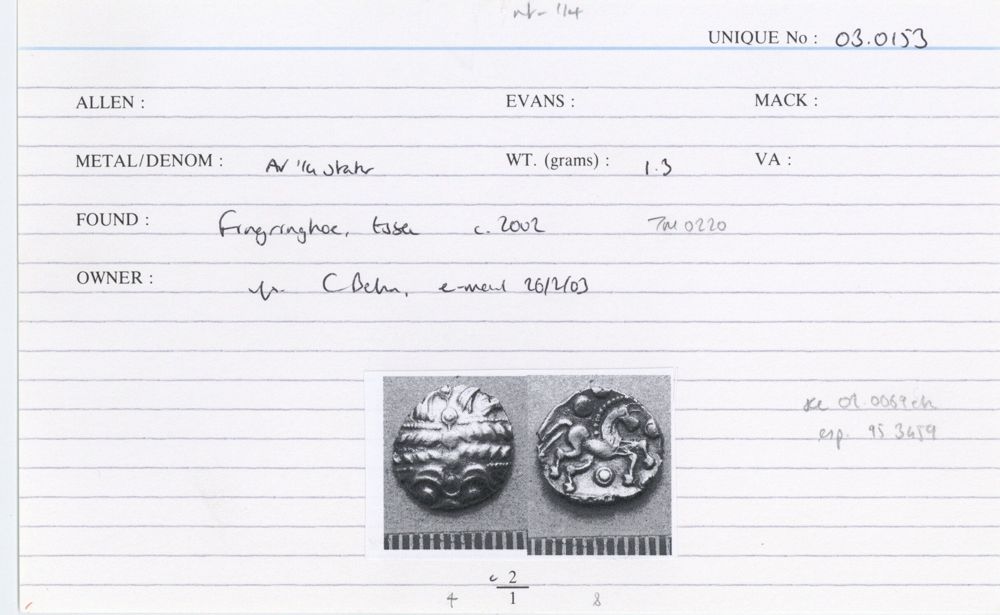 UNIQUE No : 03.0153
ALLEN : EVANS : MACK :
METAL/DENOM : AV 1/4 stater WT. (grams) : 1.3 VA :
FOUND : Fingringhoe, Essex c. 2002 TM 0220
OWNER : C e-mail 26/2/03
esp. 95.3459
c 2
4 1 8